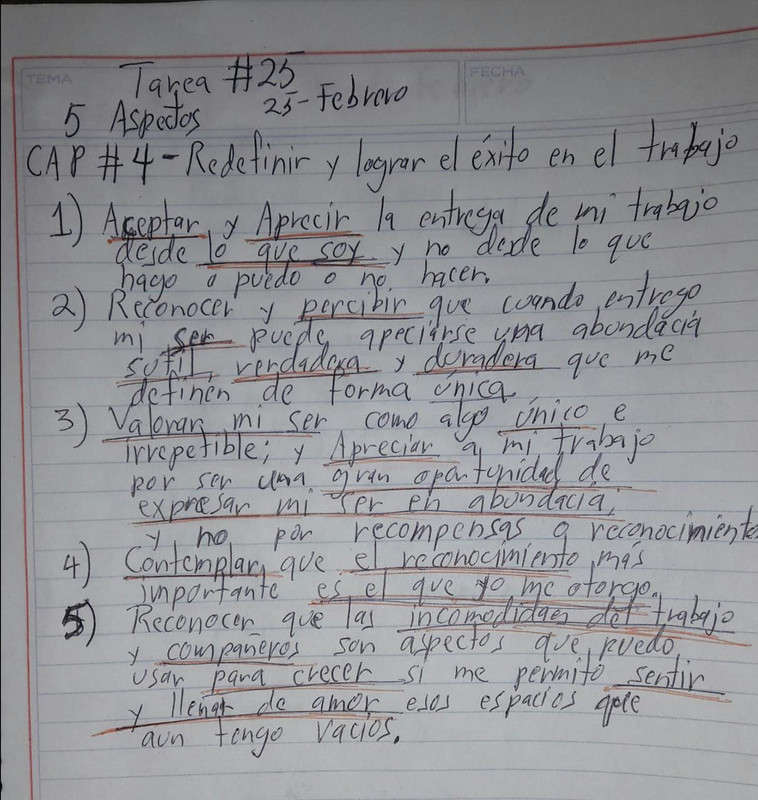 TEMA
FECHA
Tarea #25
25-Febrero
5 Aspectos
CAP #4-Redefinir y lograr el éxito en el trabajo
1) Aceptar y Aprecir la entrega de mi trabajo
desde lo que soy y no desde lo que
hago o puedo o no hacer.
2) Reconocer y percibir que cuando entrego
mi ser puede apeciarse una abundacia
sutil, verdadera y duradera que me
definen de forma única
3) Valorar mi ser como algo único e
irrepetible; y Apreciar a mi trabajo
por ser una gran oportunidad de
expresar mi ser en abundacia;
y no por recompensas o reconocimiento
4) Contemplar que el reconocimiento más
importante es el que yo me otorgo.
5) Reconocer que las incomodidaes del trabajo
y compañeros son aspectos que puedo
usar para crecer si me permito sentir
y llenar de amor esos espacios que
aun tengo vacíos.